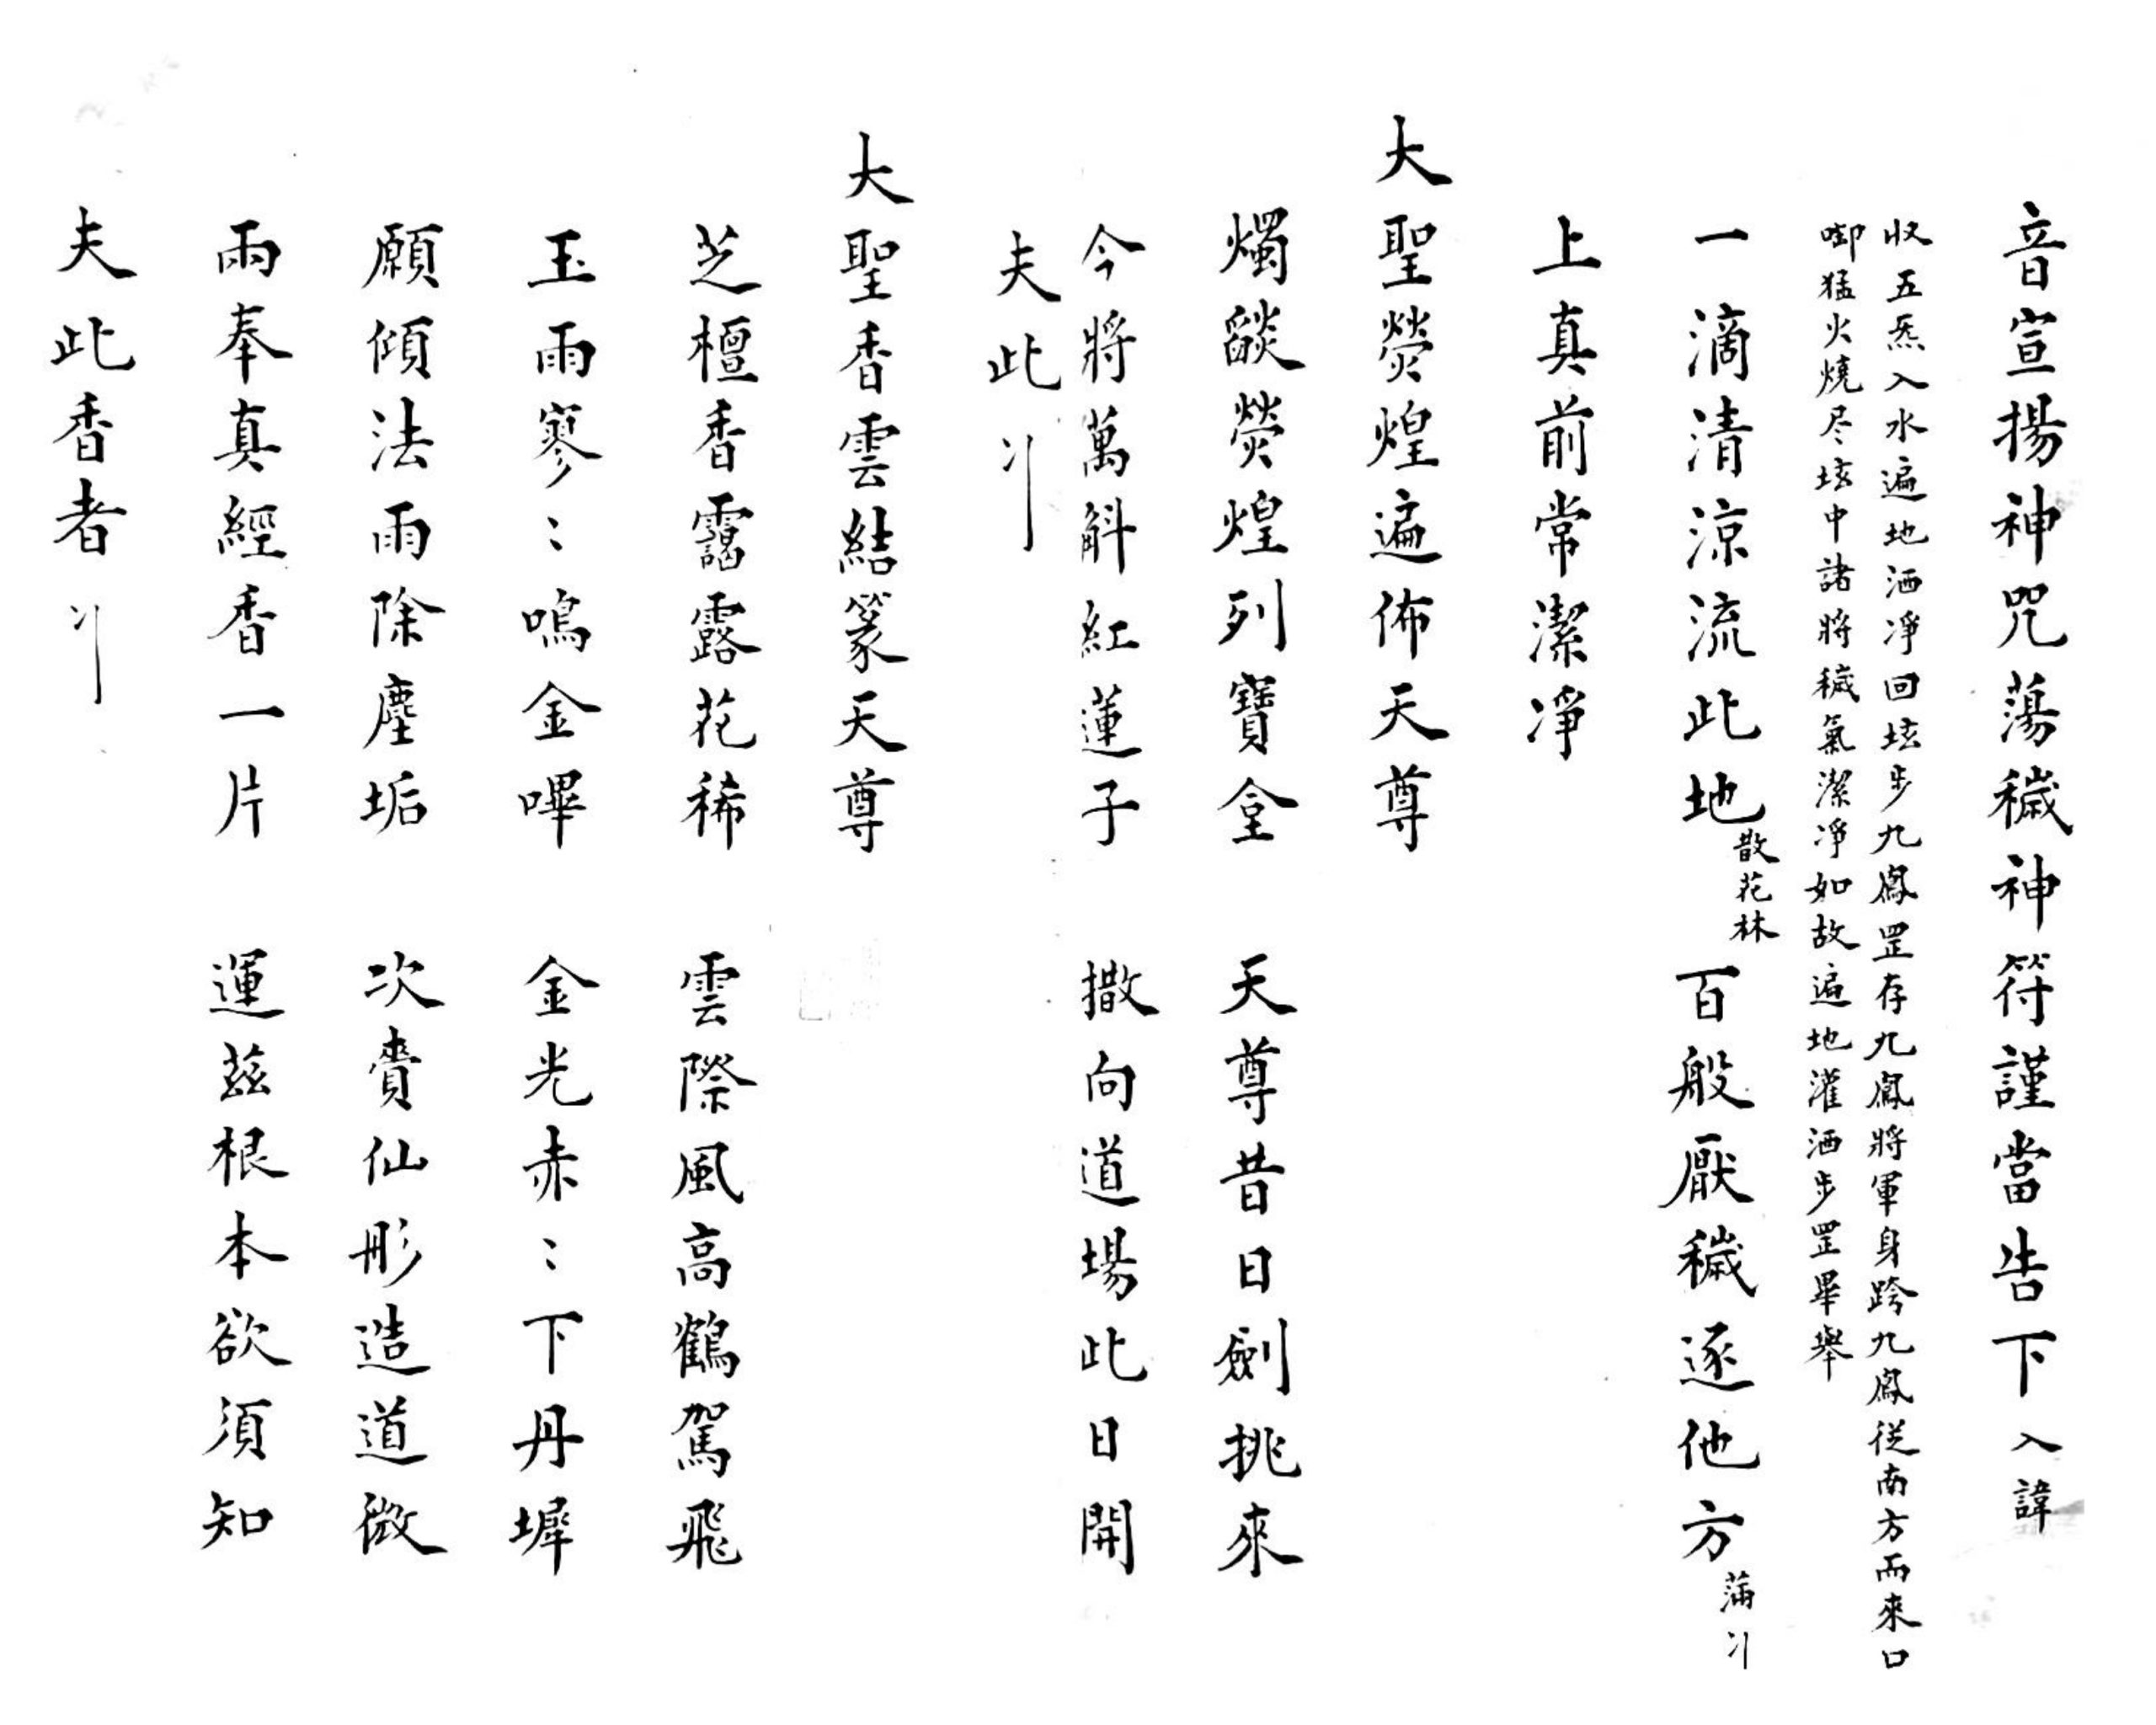 音宣揚神咒蕩穢神符謹當告下入諱
收五炁入水遍地洒凈回坛步九鳳罡存九鳳將軍身跨九鳳從南方而來口
啣猛火燒尽坛中諸將穢氣潔凈如故遍地灌洒步罡畢舉
一滴清涼流此地散花林 百般厭穢逐他方蒲刂
上真前常潔凈
大聖熒煌遍佈天尊
燭燄熒煌列寶臺 天尊昔日劍挑來
今將萬斛紅蓮子 撒向道場此日開
夫此刂
大聖香雲結篆天尊
芝檀香靄露花稀 雲際風高鶴駕飛
玉雨寥〻鳴金嗶 金光赤〻下丹墀
願傾法雨除塵垢 次賚仙形造道微
兩奉真經香一片 運茲根本欲須知
夫此香者刂